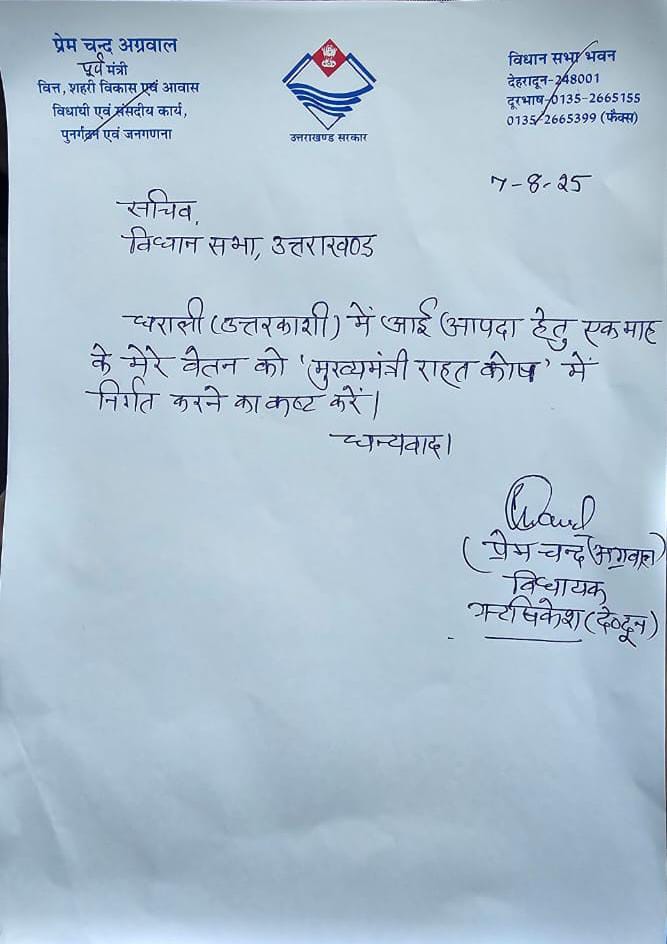 प्रेम चन्द अग्रवाल
पूर्व मंत्री
वित्त, शहरी विकास एवं आवास
विधायी एवं संसदीय कार्य,
पुनर्गठन एवं जनगणना
उत्तराखण्ड सरकार
विधान सभा भवन
देहरादून-248001
दूरभाष-0135-2665155
0135-2665399 (फैक्स)
7-8-25
सचिव,
विधान सभा, उत्तराखण्ड
धराली (उत्तरकाशी) में आई आपदा हेतु एक माह
के मेरे वेतन को 'मुख्यमंत्री राहत कोष' में
निर्गत करने का कष्ट करें।
धन्यवाद।
(प्रेम चन्द अग्रवाल)
विधायक
ऋषिकेश (दे०दून)